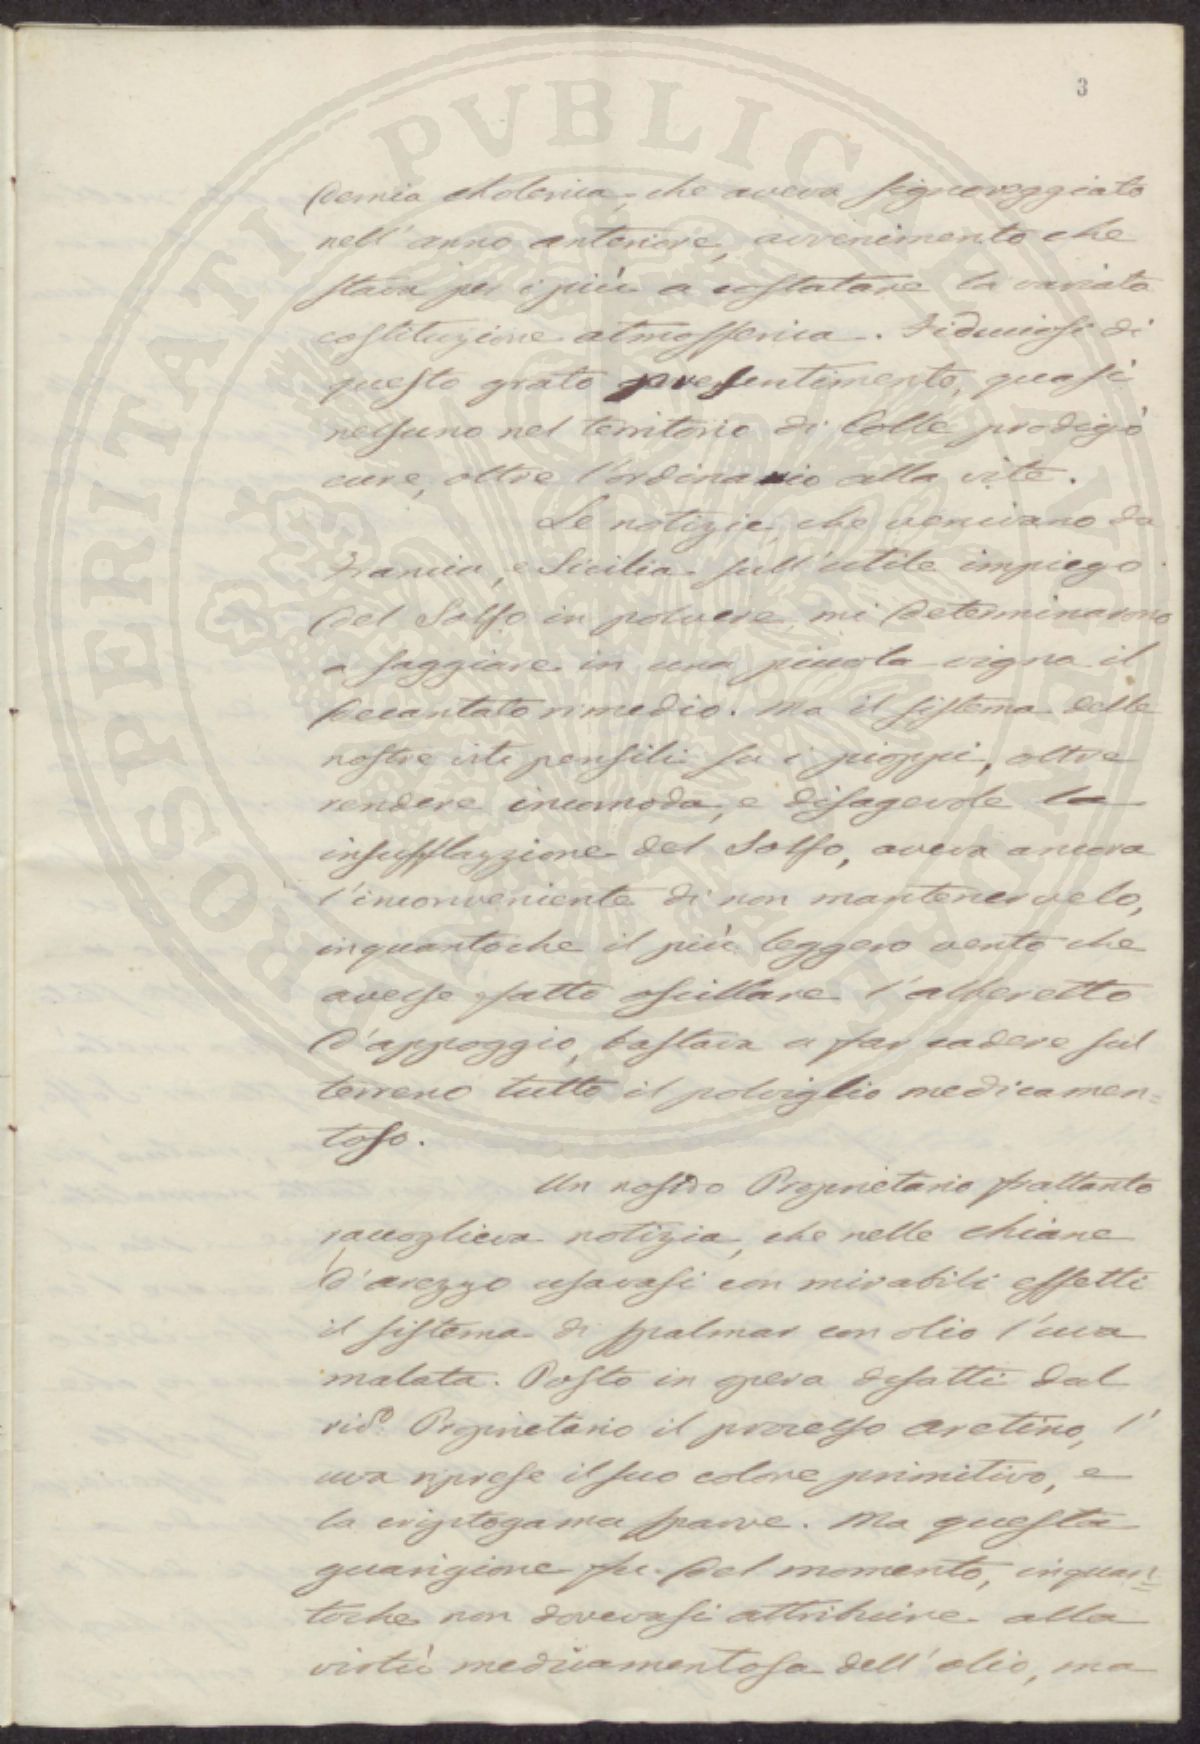 3
demia cholerica, che aveva signoreggiato
nell'anno anteriore, avvenimento che
stava per i più a costatare la variata
costituzione atmosferica. Fiduciosi di
questo grato presentimento, quasi
nessuno nel territorio di Colle prodigò
cure, oltre l'ordinario alla vite.
Le notizie, che venivano da
Francia, e Sicilia sull'utile impiego
del Solfo in polvere, mi determinarono
a saggiare in una piccola vigna il
decantato rimedio. Ma il sistema delle
nostre viti pensili su i pioppi, oltre
rendere incomoda, e disagevole la
insufflazzione del Solfo, aveva ancora
l'inconveniente di non mantenervelo,
inquantoche il più leggero vento che
avesse fatto oscillare l'alberetto
d'appoggio, bastava a far cadere sul
terreno tutto il polviglio medicamen=
toso.
Un nostro Proprietario frattanto
raccoglieva notizia, che nelle chiane
d'arezzo usavasi con mirabili effetti
il sistema di spalmar con olio l'uva
malata. Posto in opera difatti dal
rid.º Proprietario il processo aretino, l'
uva riprese il suo colore primitivo, e
la criptogama sparve. Ma questa
guarigione fu del momento, inquan=
toche non dovevasi attribuire alla
virtù medicamentosa dell'olio, ma
PROSPERITATI PVBLICAE